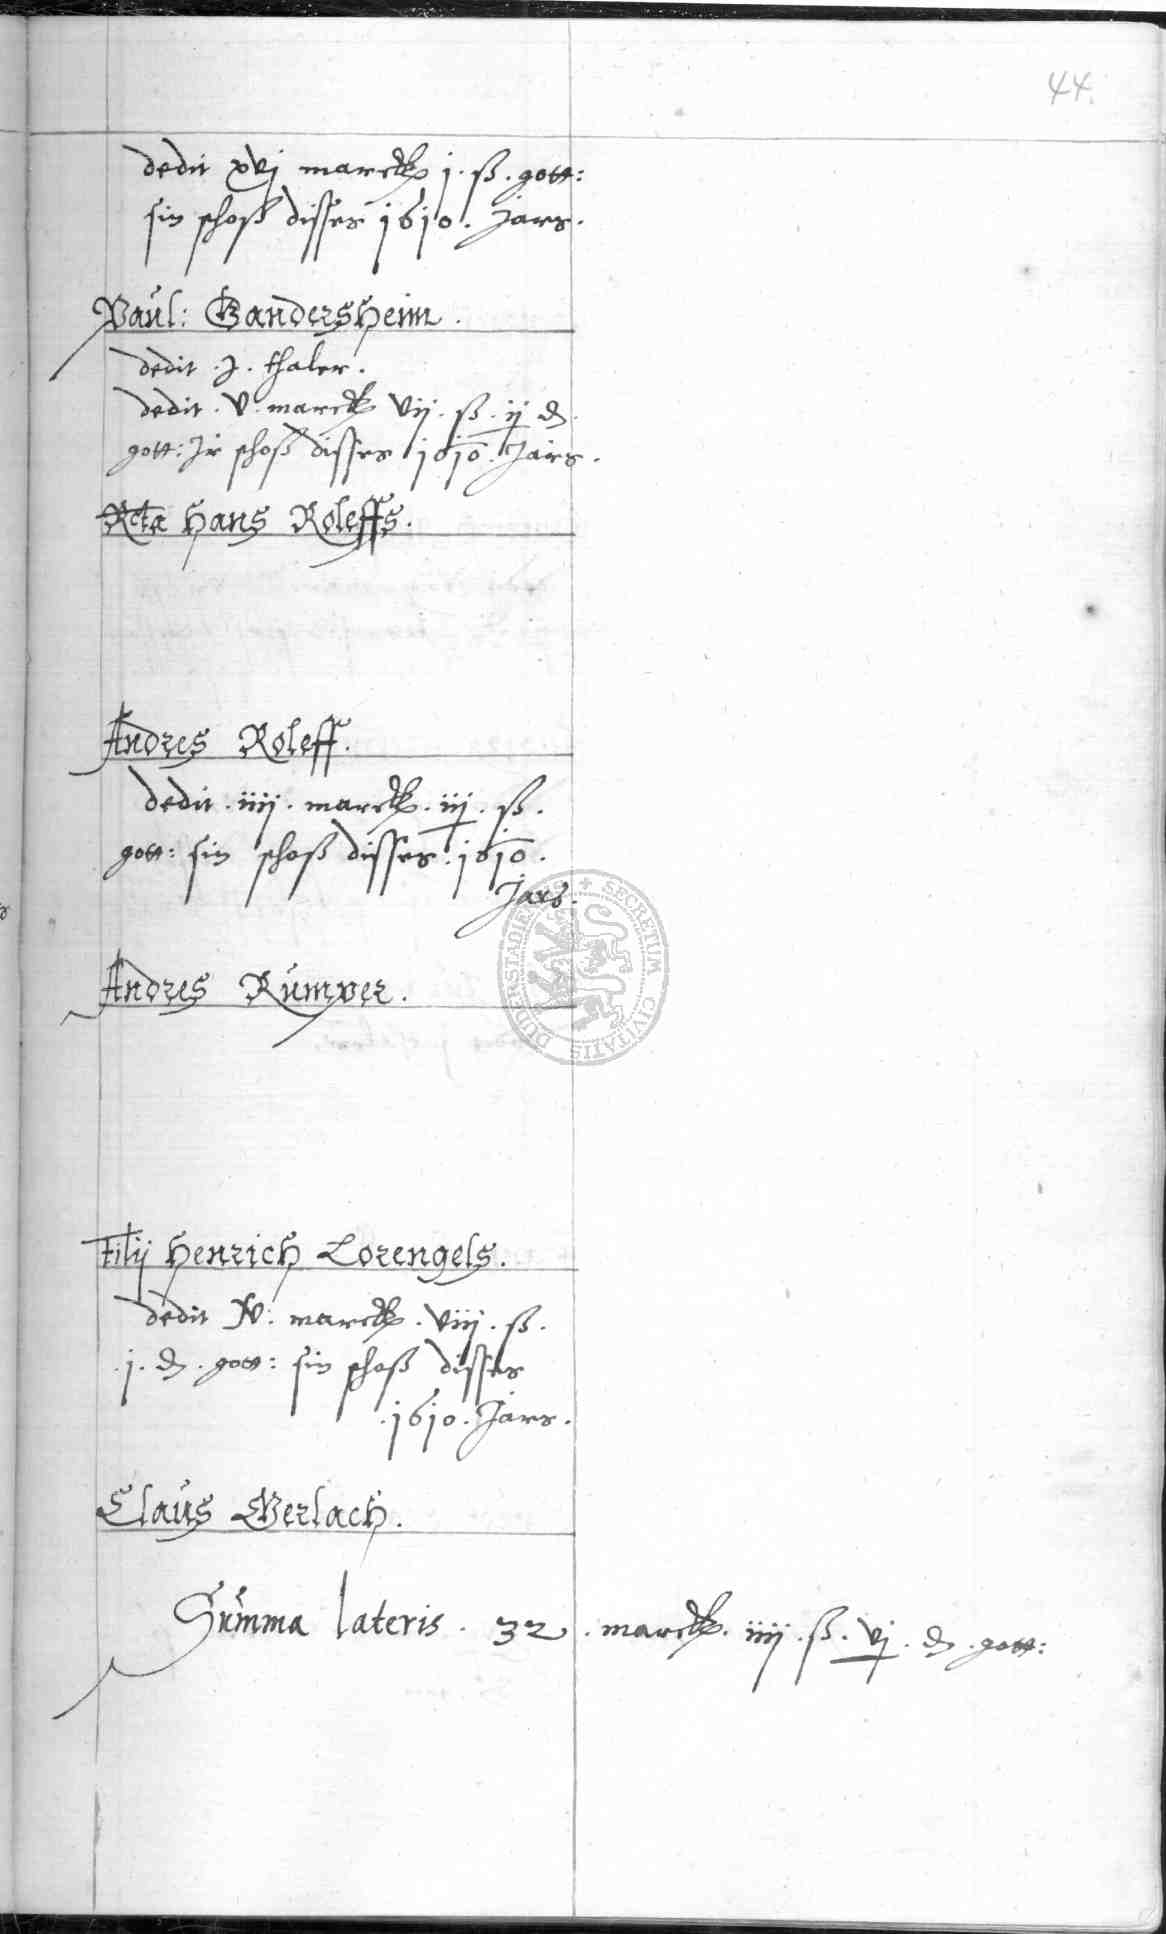 44.
dedit xvj marck j. ß. gott:
sin schoß disses 1610. Jars.
Paul: Gandersheim.
dedit . j . thaler.
dedit . v . marck vij . ß . ij d.
gott: Jr schoß disses 1610. Jars.
Rcta Hans Roleffs.
Andres Roleff.
dedit . iiij . marck . iij . ß .
gott: sin schoß disses . 1610 .
Jars.
Andres Rümper.
Filij Henrich Lorengels.
dedit iv: marck . viij . ß .
. j . d . gott: sin schoß disses
. 1610 . Jars .
Claus Gerlach.
Summa lateris . 32 . marck . iiij . ß . vj . d . gott:
SECRETUM CIVITATIS DUDERSTADIENSIS